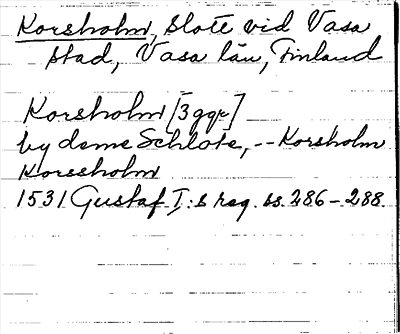 Korsholm, Slott vid Vasa
stad, Vasa län, Finland
Korsholm [3 ggr]
by deme Schlote, -- Korsholm
Korssholm
1531 Gustaf I:s reg. ss. 286-288.